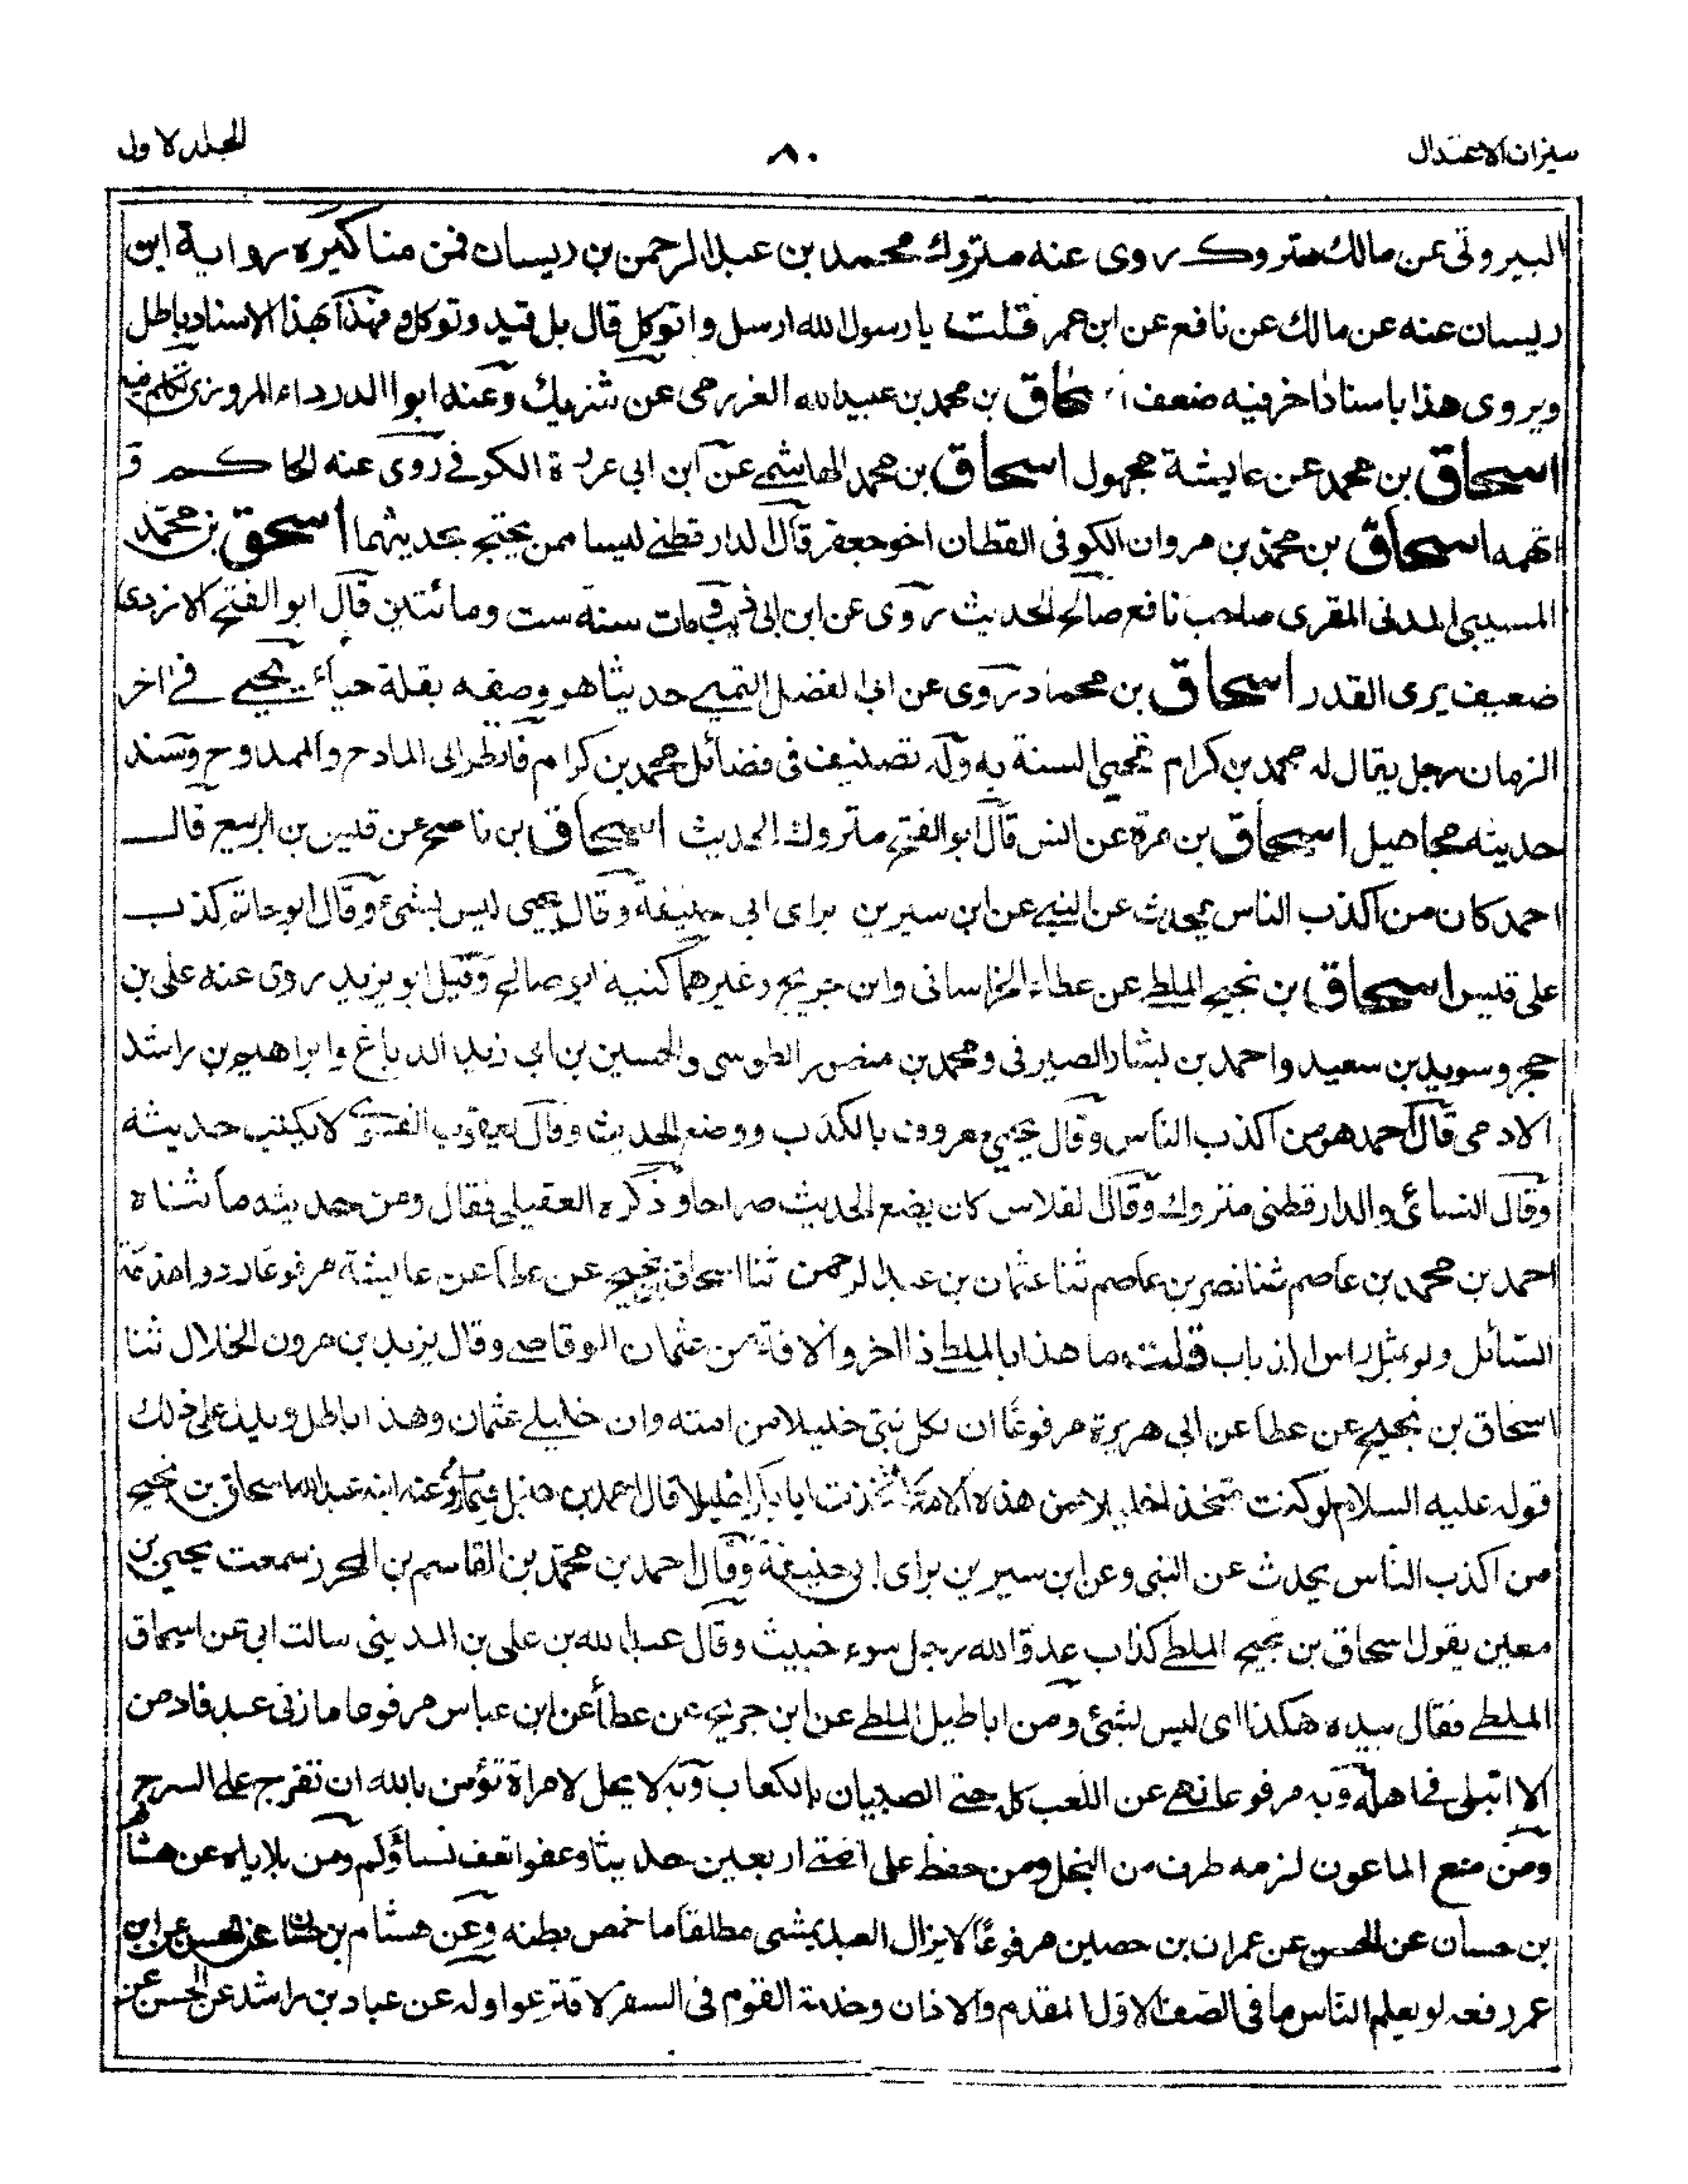 ميزان الاعتدال ٨٠ المجلد الاول
البيروتى عن مالك متروك روى عنه متروك محمد بن عبد الرحمن بن ريسان فمن مناكيره رواية ابن
ريسان عنه عن مالك عن نافع عن ابن عمر قلت يا رسول الله ارسل واتوكل قال بل قيد وتوكل فهذا بهذا الاسناد باطل
ويروى هذا باسناد اخر فيه ضعف اسحاق بن محمد بن عبيد الله العزرمى عن شريك وعنه ابو الدرداء المروزى تكلم فيه
اسحاق بن محمد عن عايشة مجهول اسحاق بن محمد الهاشمى عن ابن ابى غرزة الكوفى روى عنه الحاكم و
اتهمه اسحاق بن محمد بن مروان الكوفى القطان اخو جعفر قال الدارقطنى ليسا ممن يحتج بحديثهما اسحق بن محمد
المسيبى المدنى المقرى صاحب نافع صالح الحديث روى عن ابن ابى ذيب مات سنة ست ومائتين قال ابو الفتح الازدى
ضعيف يرى القدر اسحاق بن محمشاد روى عن ابى الفضل التميمى حديثا هو وضعه بقلة حيائه يجئ فى اخر
الزمان رجل يقال له محمد بن كرام تحيى السنة به وله تصنيف فى فضائل محمد بن كرام فانظر الى المادح والممدوح وسند
حديثه مجاهيل اسحاق بن مرة عن انس قال ابو الفتح متروك الحديث اسحاق بن ناصح عن قيس بن الربيع قال
احمد كان من اكذب الناس يحدث عن البتى عن ابن سيرين براى ابى حنيفة وقال يحيى ليس بشئ وقال ابو حاتم كذب
على قيس اسحاق بن نجيح الملطى عن عطاء الخراسانى وابن جريج وغيرهما كنيته ابو صالح وقيل ابو يزيد روى عنه على بن
حجر وسويد بن سعيد واحمد بن بشار الصيرفى ومحمد بن منصور الطوسى والحسين بن ابى زيد الدباغ وابراهيم بن راشد
الادمى قال احمد هو من اكذب الناس وقال يحيى معروف بالكذب ووضع الحديث وقال يعقوب الفسوى لا يكتب حديثه
وقال النسائى والدارقطنى متروك وقال الفلاس كان يضع الحديث صراحا وذكره العقيلى فقال ومن حديثه ما ثناه
احمد بن محمد بن عاصم ثنا نصر بن عاصم ثنا عثمان بن عبد الرحمن ثنا اسحاق بن نجيح عن عطا عن عايشة مرفوعا ردوا مذمة
السائل ولو بمثل راس الذباب قلت ما هذا بالملطى ذا اخر والافة من عثمان الوقاصى وقال يزيد بن مرون الخلال ثنا
اسحاق بن نجيح عن عطا عن ابى هريرة مرفوعا ان لكل نبى خليلا من امته وان خليلى عثمان وهذا باطل ويدل على ذلك
قوله عليه السلام لو كنت متخذا خليلا من هذه الامة لاتخذت ابا بكر خليلا قال احمد بن حنبل فيما روى عنه ابنه عبد الله اسحاق بن نجيح
من اكذب الناس يحدث عن النبى وعن ابن سيرين براى ابى حنيفة وقال احمد بن محمد بن القاسم بن المحرز سمعت يحيى بن
معين يقول اسحاق بن نجيح الملطى كذاب عدو الله رجل سوء خبيث وقال عبد الله بن على بن المدينى سالت ابى عن اسحاق
الملطى فقال بيده هكذا اى ليس بشئ ومن اباطيل الملطى عن ابن جريج عن عطأ عن ابن عباس مرفوعا ما زنى عبد فادمن
الا ابتلى فى اهله وبه مرفوعا نهى عن اللعب كل حتى الصبيان بالكعاب وبه لا يحل لامراة تؤمن بالله ان تفرج على السرج
ومن منع الماعون لزمه طرف من البخل ومن حفظ على امتى اربعين حديثا وعفوا تعف نساؤكم ومن بلاياه عن هشام
بن حسان عن الحسن عن عمران بن حصين مرفوعا لا يزال العبد يمشى مطلقا ما خمص بطنه وعن هشام بن حسان عن الحسن عن ابن
عمر رفعه لو يعلم الناس ما فى الصف الاول المقدم والاذان وخدمة القوم فى السفر لاقترعوا وله عن عباد بن راشد عن الحسن عن